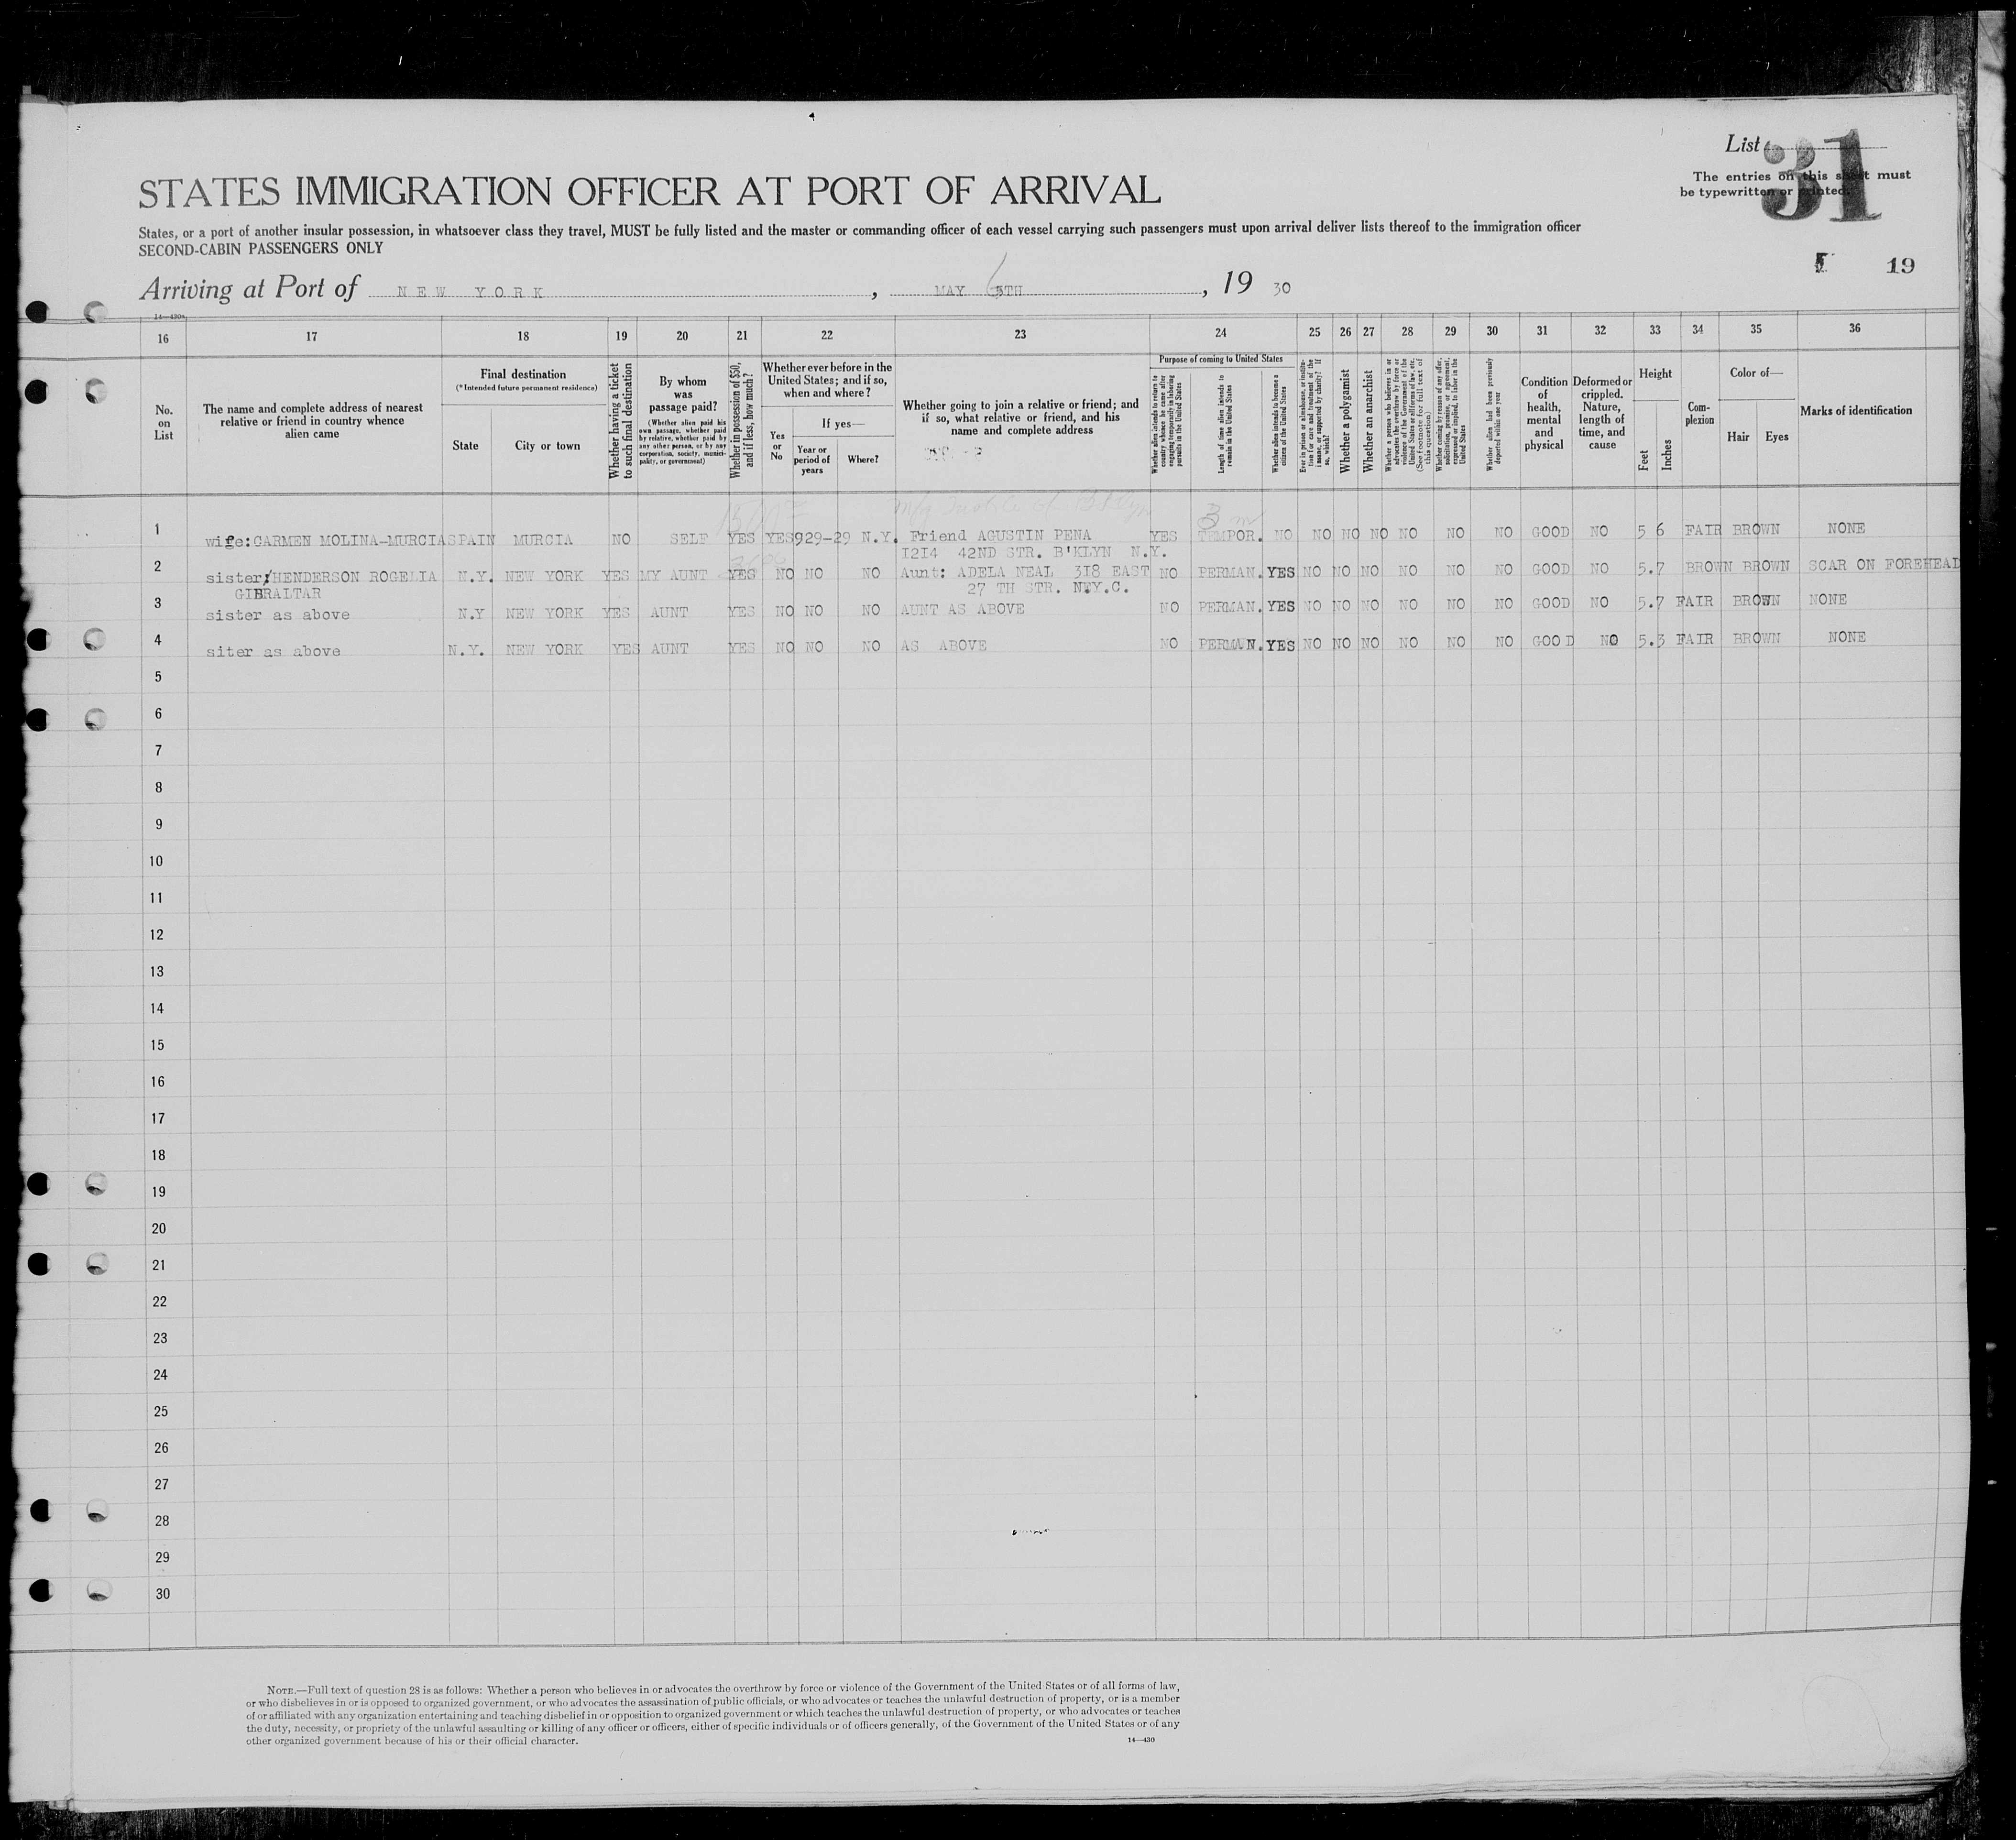 List 31
The entries on this sheet must
be typewritten or printed.
STATES IMMIGRATION OFFICER AT PORT OF ARRIVAL
States, or a port of another insular possession, in whatsoever class they travel, MUST be fully listed and the master or commanding officer of each vessel carrying such passengers must upon arrival deliver lists thereof to the immigration officer
SECOND-CABIN PASSENGERS ONLY
19
Arriving at Port of NEW YORK, MAY 6TH, 19 30
14—430a
16 17 18 19 20 21 22 23 24 25 26 27 28 29 30 31 32 33 34 35 36
No. on List
The name and complete address of nearest relative or friend in country whence alien came
Final destination
(*Intended future permanent residence)
State
City or town
Whether having a ticket to such final destination
By whom was passage paid?
(Whether alien paid his own passage, whether paid by relative, whether paid by any other person, or by any corporation, society, municipality, or government)
Whether in possession of $50, and if less, how much?
Whether ever before in the United States; and if so, when and where?
Yes or No
If yes—
Year or period of years
Where?
Whether going to join a relative or friend; and if so, what relative or friend, and his name and complete address
Purpose of coming to United States
Whether alien intends to return to country whence he came after engaging temporarily in laboring pursuits in the United States
Length of time alien intends to remain in the United States
Whether alien intends to become a citizen of the United States
Ever in prison or almshouse, or institution for care and treatment of the insane, or supported by charity? If so, which?
Whether a polygamist
Whether an anarchist
Whether a person who believes in or advocates the overthrow by force or violence of the Government of the United States or all forms of law, etc. (See footnote for full text of this question.)
Whether coming by reason of any offer, solicitation, promise, or agreement, expressed or implied, to labor in the United States
Whether alien had been previously deported within one year
Condition of health, mental and physical
Deformed or crippled. Nature, length of time, and cause
Height
Feet
Inches
Complexion
Color of—
Hair
Eyes
Marks of identification
3 m
1 wife:CARMEN MOLINA-MURCIA SPAIN MURCIA NO SELF YES YES 929-29 N.Y. Friend AGUSTIN PENA YES TEMPOR. NO NO NO NO NO NO NO GOOD NO 5 6 FAIR BROWN NONE
I2I4 42ND STR. B'KLYN N.Y.
2 sister/HENDERSON ROGELIA N.Y. NEW YORK YES MY AUNT YES NO NO NO Aunt: ADELA NEAL 3I8 EAST NO PERMAN. YES NO NO NO NO NO NO GOOD NO 5.7 BROWN BROWN SCAR ON FOREHEAD
GIBRALTAR 27 TH STR. N.Y.C.
3 sister as above N.Y NEW YORK YES AUNT YES NO NO NO AUNT AS ABOVE NO PERMAN. YES NO NO NO NO NO NO GOOD NO 5.7 FAIR BROWN NONE
4 siter as above N.Y. NEW YORK YES AUNT YES NO NO NO AS ABOVE NO PERMAN. YES NO NO NO NO NO NO GOOD NO 5.3 FAIR BROWN NONE
5
6
7
8
9
10
11
12
13
14
15
16
17
18
19
20
21
22
23
24
25
26
27
28
29
30
NOTE.—Full text of question 28 is as follows: Whether a person who believes in or advocates the overthrow by force or violence of the Government of the United States or of all forms of law,
or who disbelieves in or is opposed to organized government, or who advocates the assassination of public officials, or who advocates or teaches the unlawful destruction of property, or is a member
of or affiliated with any organization entertaining and teaching disbelief in or opposition to organized government or which teaches the unlawful destruction of property, or who advocates or teaches
the duty, necessity, or propriety of the unlawful assaulting or killing of any officer or officers, either of specific individuals or of officers generally, of the Government of the United States or of any
other organized government because of his or their official character.
14—430